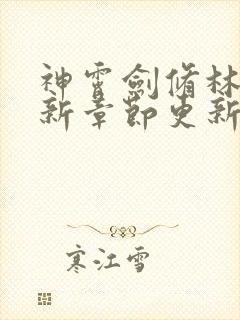 神霄劍脩林
新章節更新
寒江雪